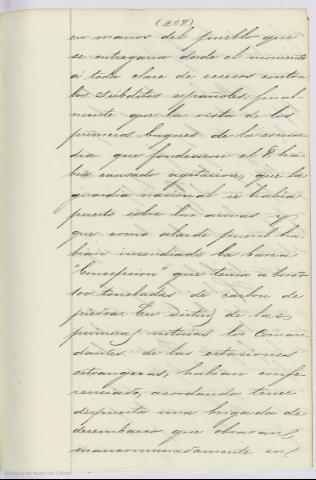 (207)
en manos del pueblo que
se entregaria desde el momento
á toda clase de escesos contra
los súbditos españoles; final-
mente que la vista de los
primeros buques de la escua-
dra que fondearon el 8, ha-
bia causado agitacion, que la
guardia nacional se habia
puesto sobre las armas y
que como alarde pueril ha-
bian incendiado la barca
"Concepcion" que tenia á bordo
toneladas de carbon de
piedra. En virtud de las
primeras noticias los Coman-
dantes de las estaciones
estrangeras, habian confe-
renciado, acordando tener
dispuesta una brigada de
desembarco que obraran
mancomunadamente en el